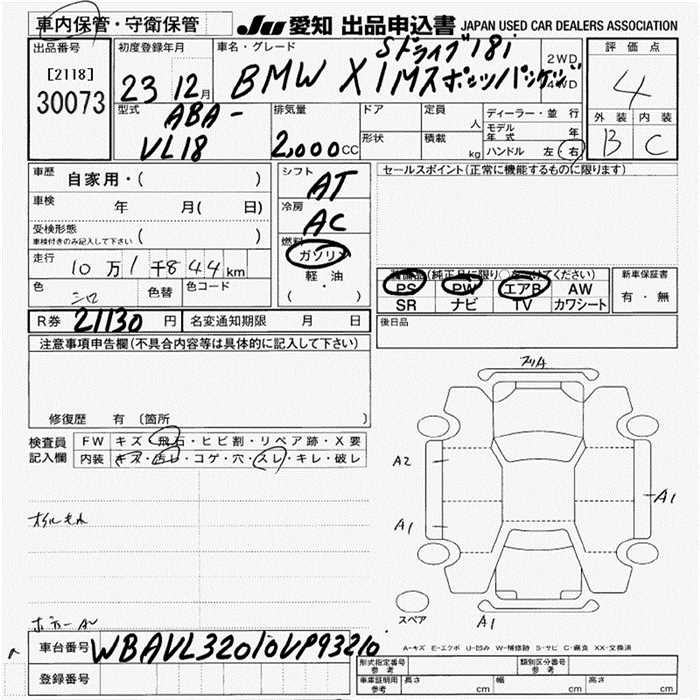 車内保管・守衛保管 JU 愛知 出品申込書 JAPAN USED CAR DEALERS ASSOCIATION
出品番号 [2118] 30073
初度登録年月 23 12月
車名・グレード Sドライブ18i
BMW X1Mスポーツパッケージ 2WD 4WD
評価点 4
外装 内装
B C
型式 ABA-
VL18
排気量 2,000CC
ドア
形状
定員 人
積載 kg
ディーラー・並行
モデル年式 年
ハンドル 左 右
車歴 自家用・( )
車検 年 月( 日)
受検形態
車検付きのみ記入して下さい ( )
走行 10万1千844km
色 シロ 色替 色コード
R券 21130円 名変通知期限 月 日
シフト AT
冷房 AC
燃料 ガソリン
軽・油
( ・ )
セールスポイント(正常に機能するものに限ります)
装備品(純正品に限り○をつけてください)
PS PW エアB AW
SR ナビ TV カワシート
新車保証書
有・無
後日品
注意事項申告欄(不具合内容等は具体的に記入して下さい)
修復歴 有 〔箇所 〕
検査員記入欄
FW キズ・飛石・ヒビ割・リペア跡・X要
内装 キズ・汚レ・コゲ・穴・スレ・キレ・破レ
A2
A1
A1
A1
スペア
A-キズ E-エクボ U-凹み W-補修跡 S-サビ C-腐食 XX-交換済
車台番号 WBAVL32010VP93210
登録番号
形式指定番号 参考
類別区分番号 参考
車庫証明用 参考 長さ cm 幅 cm 高さ cm